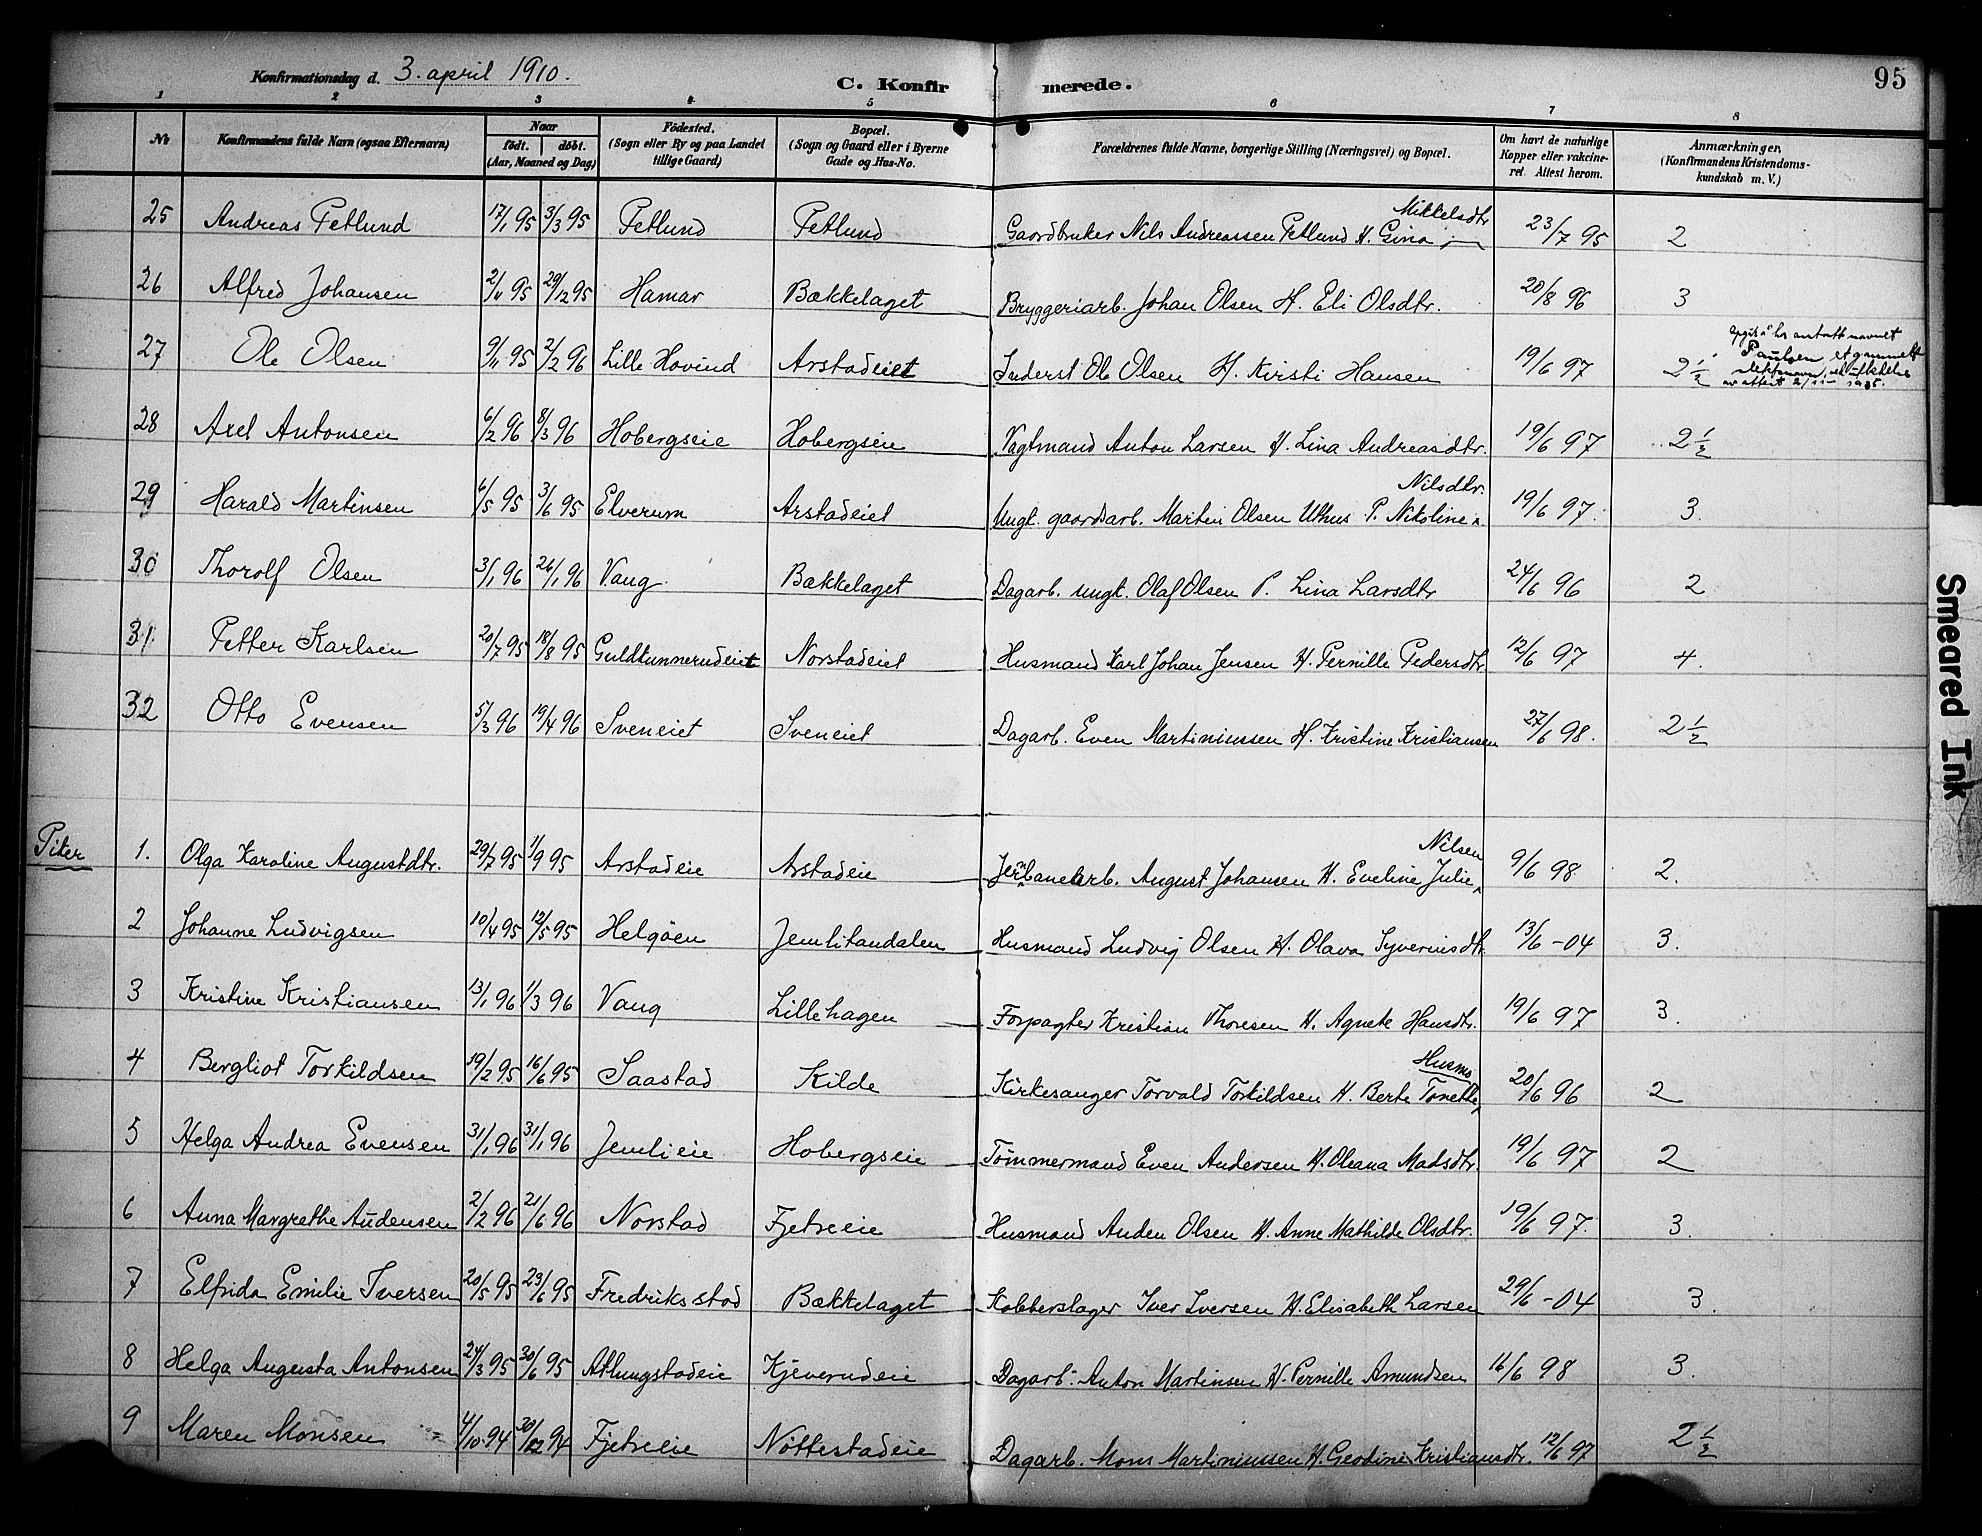 Konfirmationsdag d. 3. april 1910. C. Konfirmerede. 95
1 2 3 4 5 6 7 8
№ Konfirmandens fulde Navn (ogsaa Efternavn) Naar født. døbt. (Aar, Maaned og Dag) Födested. (Sogn eller By og paa Landet tillige Gaard) Bopæl. (Sogn og Gaard eller i Byerne Gade og Hus-No. Forældrenes fulde Navne, borgerlige Stilling (Næringsvei) og Bopæl. Om havt de naturlige Kopper eller vakcineret. Attest herom. Anmærkninger. (Konfirmandens Kristendomskundskab m. V.)
25 Andreas Petlund 17/1 95 3/3 95 Petlund Petlund Gaardbruker Nils Andreassen Petlund H. Gina Mikkelsdtr 23/7 95 2
26 Alfred Johansen 2/11 95 29/12 95 Hamar Bækkelaget Bryggeriarb. Johan Olsen H. Eli Olsdtr. 20/8 96 3
27 Ole Olsen 9/11 95 2/2 96 Lille Hovind Arstadeiet Inderst Ole Olsen H. Kirsti Hansen 19/6 97 2 1/2 anstatt navnet Paulsen, et gammelt av attest 2/11 - 1935.
28 Axel Antonsen 6/2 96 8/3 96 Hobergseie Hobergseie Vagtmand Anton Larsen H. Lina Andreasdtr. 19/6 97 2 1/2
29 Harald Martinsen 6/5 95 3/6 95 Elverum Arstadeiet Ungk. gaardsarb. Martin Olsen Uthus P. Nikoline Nilsdtr. 19/6 97. 3.
30 Thorolf Olsen 3/1 96 26/1 96 Vang Bækkelaget Dagarb. ungk. Olaf Olsen P. Lina Larsdtr 24/6 96 2
31 Petter Karlsen 20/7 95 18/8 95 Guldkunnerudeiet Norstadeiet Husmand Karl Johan Jensen H. Pernille Pedersdtr 12/6 97 4.
32 Otto Evensen 5/3 96 19/4 96 Sveneiet Sveneiet Dagarb. Even Martiniussen H. Kristine Kristiansen 27/6 98. 2 1/2
Piker 1. Olga Karoline Augustdtr. 29/7 95 1/9 95 Arstadeie Arstadeie Jernbanearb. August Johansen H. Eveline Julie Nilsen 9/6 98 2.
2 Johanne Ludvigsen 10/4 95 12/5 95 Helgöen Jemlitandalen Husmand Ludvig Olsen H. Olava Syverinsdtr. 13/6 - 04 3.
3 Kristine Kristiansen 13/1 96 1/3 96 Vang Lillehagen Forpagter Kristian Thoresen H. Agnete Hansdtr. 19/6 97 3.
4 Bergliot Torkildsen 19/2 95 16/6 95 Saastad Kilde Kirkesanger Torvald Torkildsen H. Berte Tonette Husmo 20/6 96 2
5 Helga Andrea Evensen 31/1 96 31/1 96 Jemlieie Hobergseie Tömmermand Even Andersen H. Oleana Madsdtr. 19/6 97 2
6 Anna Margrethe Audensen 2/2 96 21/6 96 Norstad Fjetreeie Husmand Auden Olsen H. Anne Mathilde Olsdtr. 19/6 97. 3.
7 Elfrida Emilie Iversen 20/5 95 23/6 95 Fredriksstad Bækkelaget Kobberslager Iver Iversen H. Elisabeth Larsen 29/6 - 04 3.
8 Helga Augusta Antonsen 24/3 95 30/6 95 Atlungstadeie Kjeverudeie Dagarb. Anton Martinsen H. Pernille Amundsen 16/6 98 3.
9 Maren Monsen 4/10 94 30/12 94 Fjetreeie Nöttestadeie Dagarb. Mons Martiniussen H. Geodine Kristiansdtr. 12/6 97 2 1/2
Smeared Ink